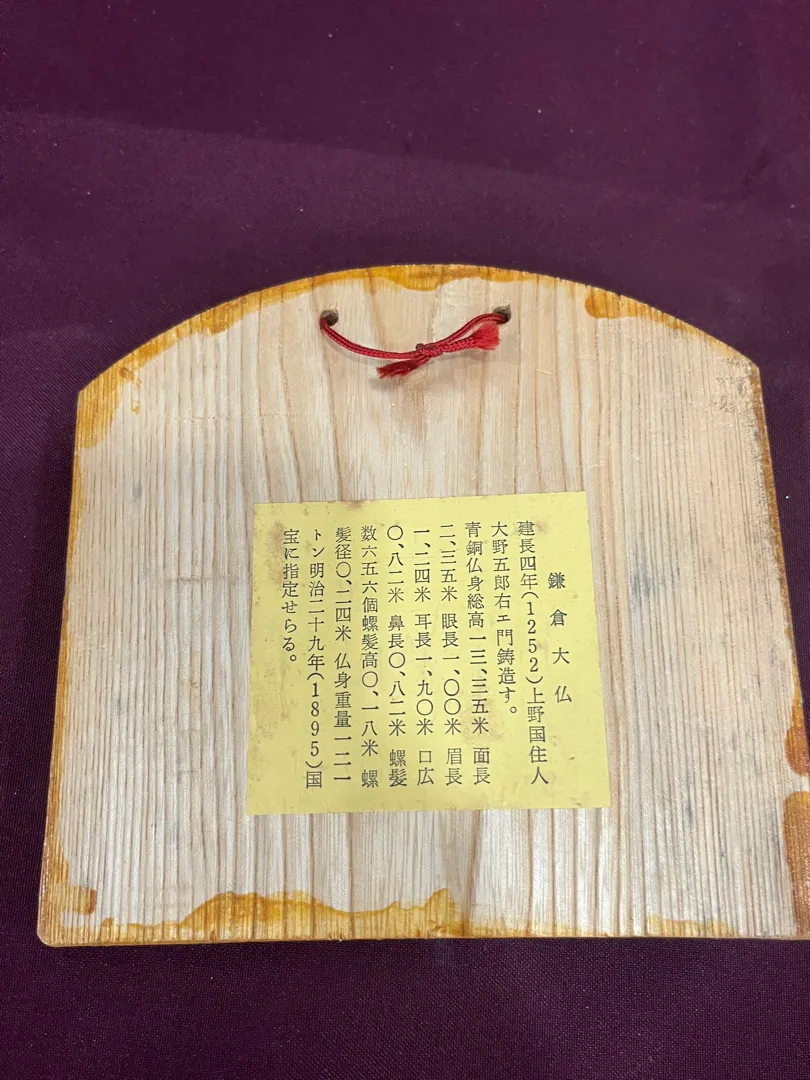 鎌倉大仏
建長四年(1252)上野国住人
大野五郎右エ門鋳造す。
青銅仏身総高一三、三五米 面長
二、三五米 眼長一、〇〇米 眉長
一、二四米 耳長一、九〇米 口広
〇、八二米 鼻長〇、八二米 螺髪
数六五六個螺髪高〇、一八米 螺
髪径〇、二四米 仏身重量一二一
トン明治二十九年(1895)国
宝に指定せらる。